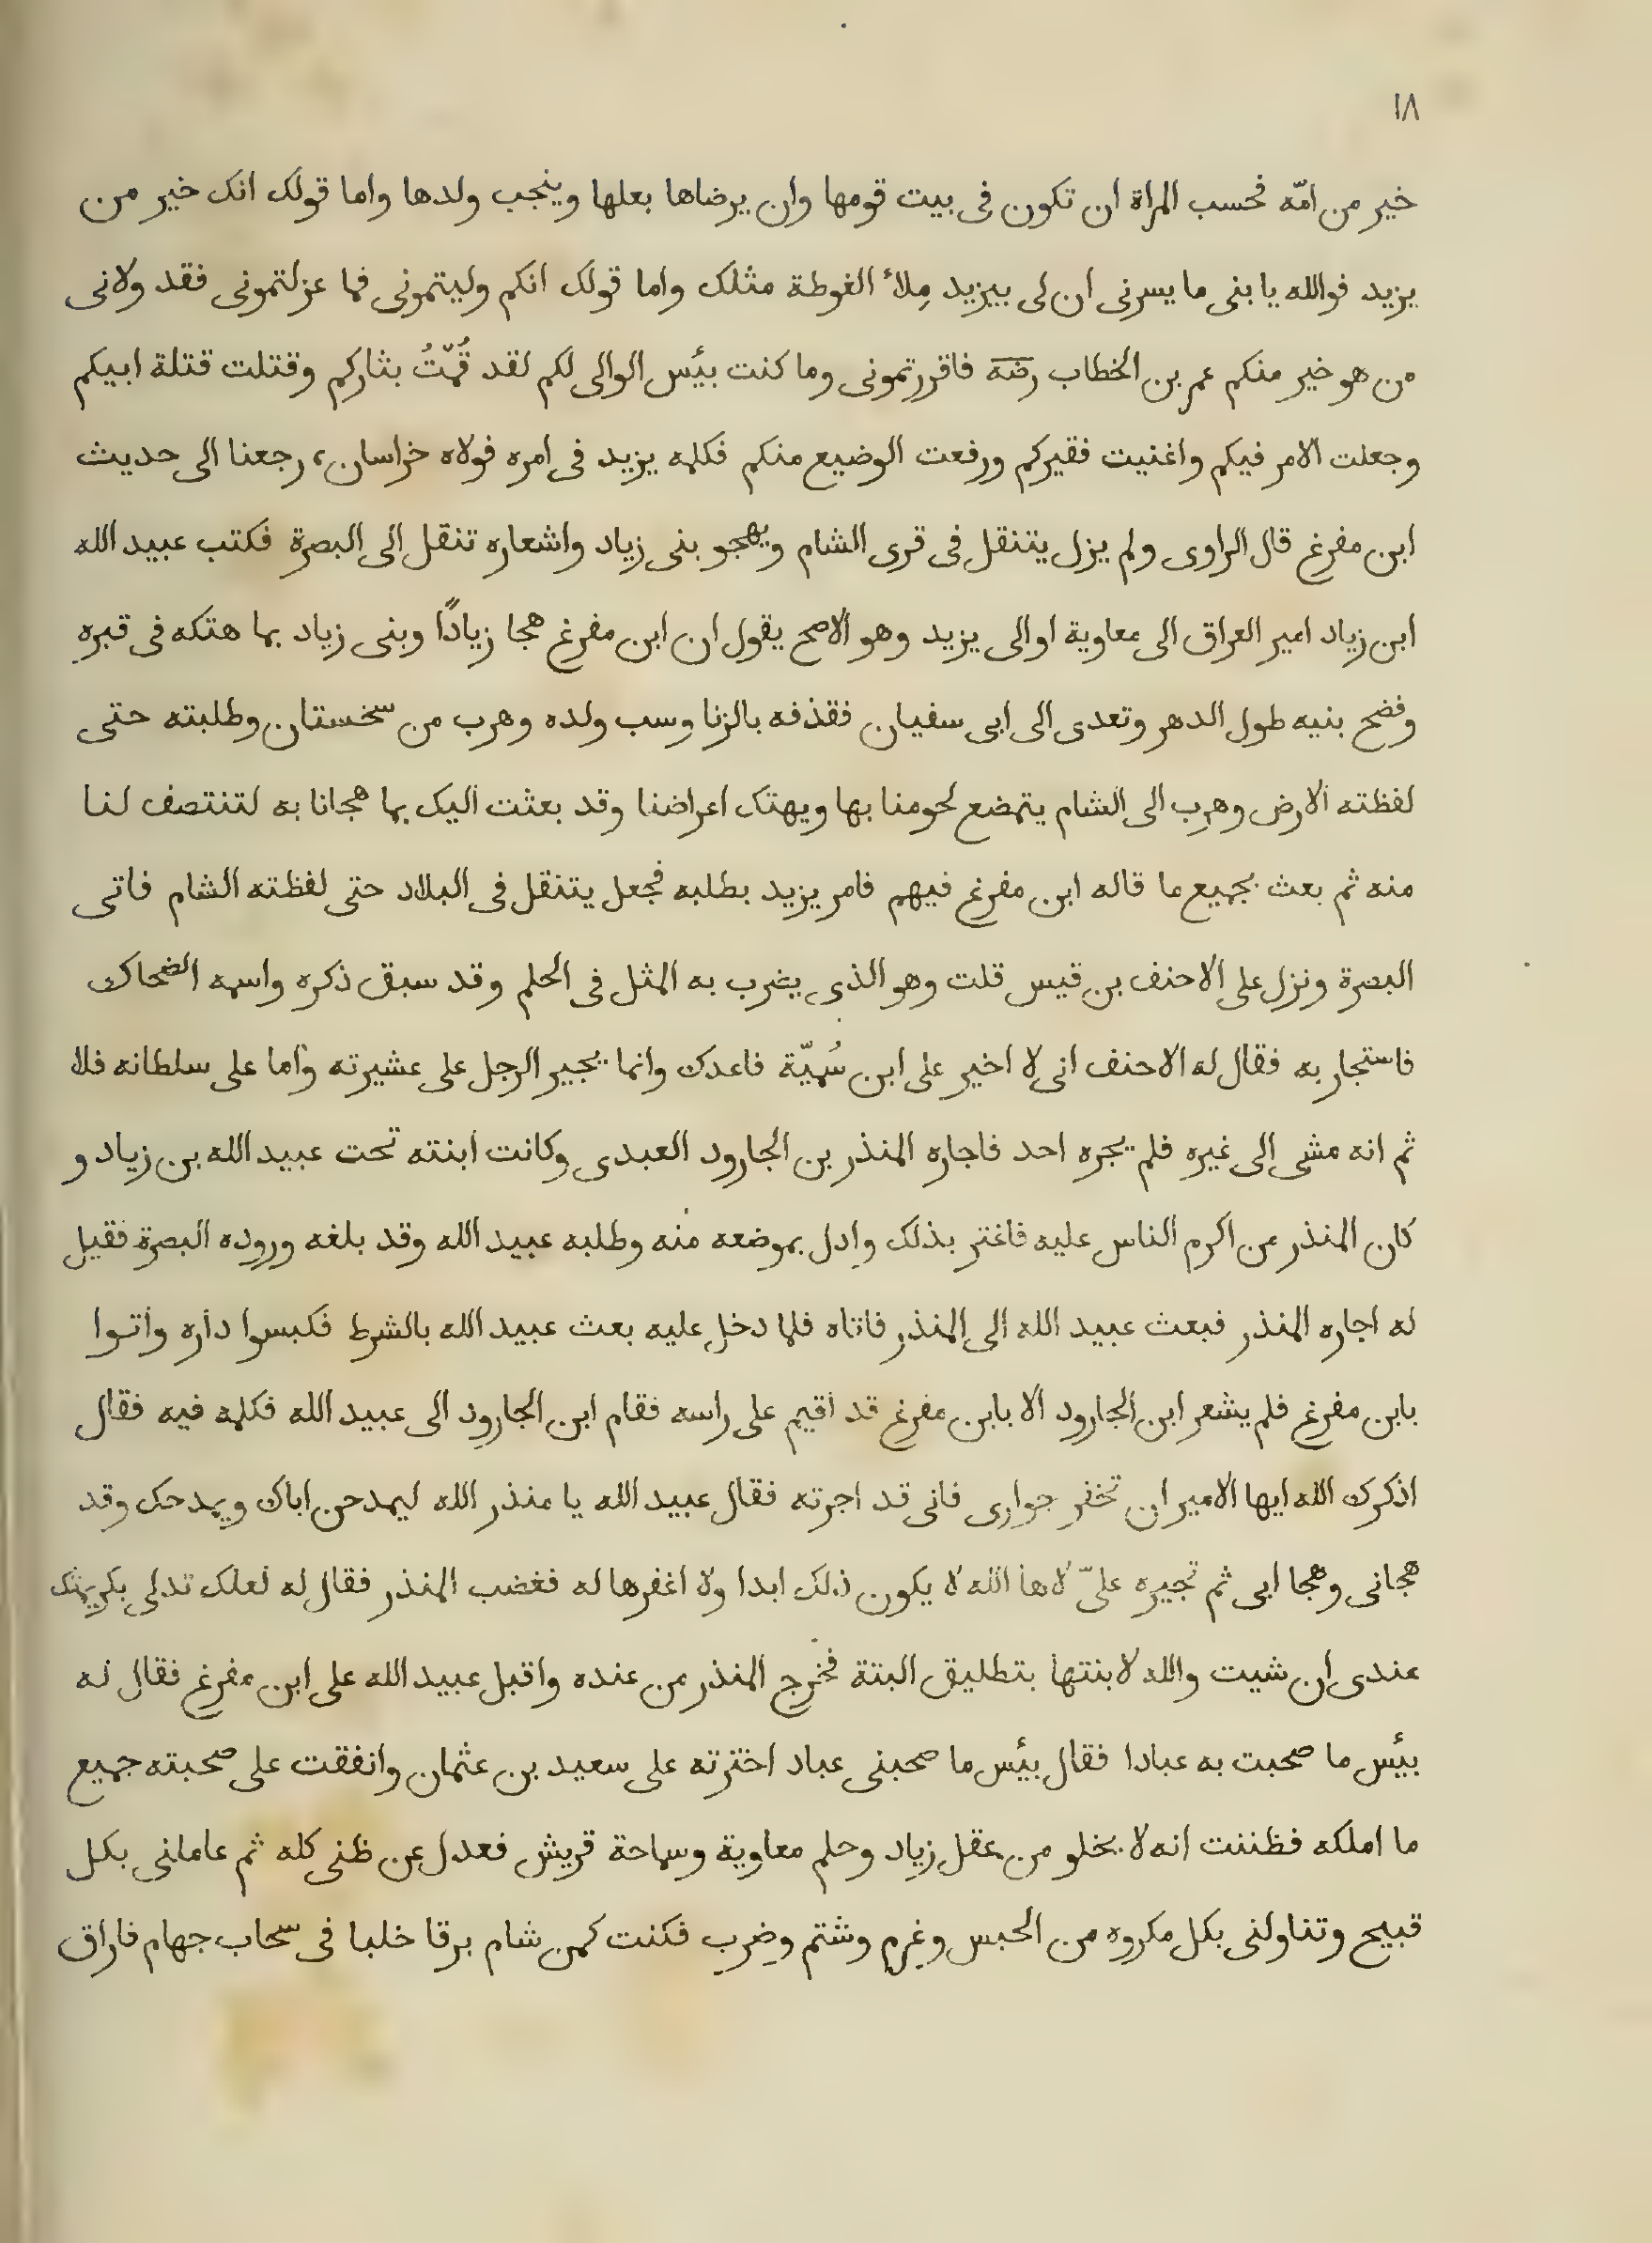 ١٨
خير من امّه فحسب المراة ان تكون فى بيت قومها وان يرضاها بعلها وينجب ولدها واما قولك انك خير من
يزيد فوالله يا بنى ما يسرنى ان لى بيزيد مِلأ الغوطة مثلك واما قولك انكم وليتمونى فما عزلتمونى فقد ولانى
من هو خير منكم عمر بن الخطاب رضه فاقررتمونى وما كنت بئس الوالى لكم لقد قُمْتُ بثاركم وقتلت قتلة ابيكم
وجعلت الامر فيكم واغنيت فقيركم ورفعت الوضيع منكم فكلمه يزيد فى امره فولاه خراسان، رجعنا الى حديث
ابن مفرغ قال الراوى ولم يزل يتنقل فى قرى الشام ويهجو بنى زياد واشعاره تنقل الى البصرة فكتب عبيد الله
ابن زياد امير العراق الى معاوية او الى يزيد وهو الاصح يقول ان ابن مفرغ هجا زيادًا وبنى زياد بما هتكه فى قبره
وفضح بنيه طول الدهر وتعدى الى ابى سفيان فقذفه بالزنا وسب ولده وهرب من سخستان وطلبته حتى
لفظته الارض وهرب الى الشام يتمضع لحومنا بها ويهتك اعراضنا وقد بعثت اليك بما هجانا به لتنتصف لنا
منه ثم بعث بجميع ما قاله ابن مفرغ فيهم فامر يزيد بطلبه فجعل يتنقل فى البلاد حتى لفظته الشام فاتى
البصرة ونزل على الاحنف بن قيس قلت وهو الذى يضرب به المثل فى الحلم وقد سبق ذكره واسمه الضحاك
فاستجار به فقال له الاحنف انى لا اخير على ابن سُميّة فاعدك وانما يجير الرجل على عشيرته واما على سلطانه فلا
ثم انه مشى الى غيره فلم يجره احد فاجاره المنذر بن الجارود العبدى وكانت ابنته تحت عبيد الله بن زياد و
كان المنذر من اكرم الناس عليه فاغتر بذلك وادل بموضعه منه وطلبه عبيد الله وقد بلغه وروده البصرة فقيل
له اجاره المنذر فبعث عبيد الله الى المنذر فاتاه فلما دخل عليه بعث عبيد الله بالشرط فكبسوا داره واتوا
بابن مفرغ فلم يشعر ابن الجارود الا بابن مفرغ قد اقيم على راسه فقام ابن الجارود الى عبيد الله فكلمه فيه فقال
اذكرك الله ايها الامير ان تخفر جوارى فانى قد اجرته فقال عبيد الله يا منذر الله ليمدحن اباك ويمدحك وقد
هجانى وهجا ابى ثم تجيره علىّ لاها الله لا يكون ذلك ابدا ولا اغفرها له فغضب المنذر فقال له لعلك تدلى بكريمتك
عندى ان شيت والله لابنتها بتطليق البتة فخرج المنذر من عنده واقبل عبيد الله على ابن مفرغ فقال له
بئس ما صحبت به عبادا فقال بئس ما صحبنى عباد اخترته على سعيد بن عثمان وانفقت على صحبته جميع
ما املكه فظننت انه لا يخلو من عقل زياد وحلم معاوية وسماحة قريش فعدل عن ظنى كله ثم عاملنى بكل
قبيح وتناولنى بكل مكروه من الحبس وغرم وشتم وضرب فكنت كمن شام برقا خلبا فى سحاب جهام فاراق